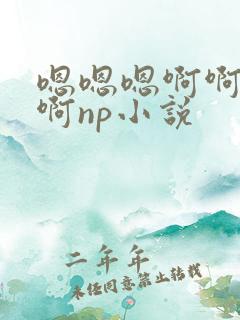 嗯嗯嗯啊啊
啊np小説
二年年
未经同意禁止转载